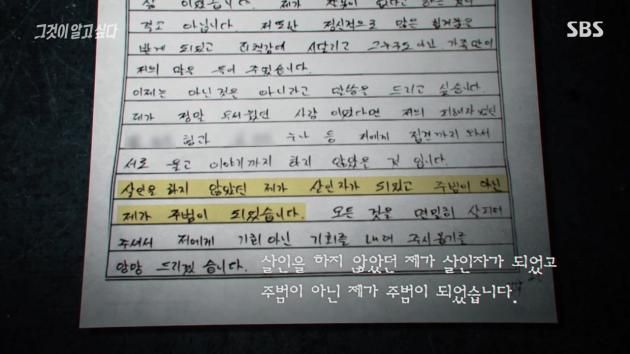 그것이 알고 싶다
SBS
싶 이었습니다. 제가 잘못이 없다고 하는 것이
적고 아닙니다. 저 또한 정신적으로 많은 힘겨움을
받게 되었고
저의 말을 들어 주었습니다.
이제는 아닌것은 아니라고 말씀을 드리고 싶습니다.
제가 정말 무서웠던 사람 이었다면 저의 피해자였던
형과 누나 등 저에게 접견까지 와서
서로 울고 이야기까지 하지 않았을 것 입니다.
살인을 하지 않았던 제가 살인자가 되었고 주범이 아닌
제가 주범이 되었습니다. 모든 것을 면밀히 살피어
주셔서 저에게 기회 아닌 기회를 내려 주시옵기를
앙망 드리겠습니다.
살인을 하지 않았던 제가 살인자가 되었고
주범이 아닌 제가 주범이 되었습니다.